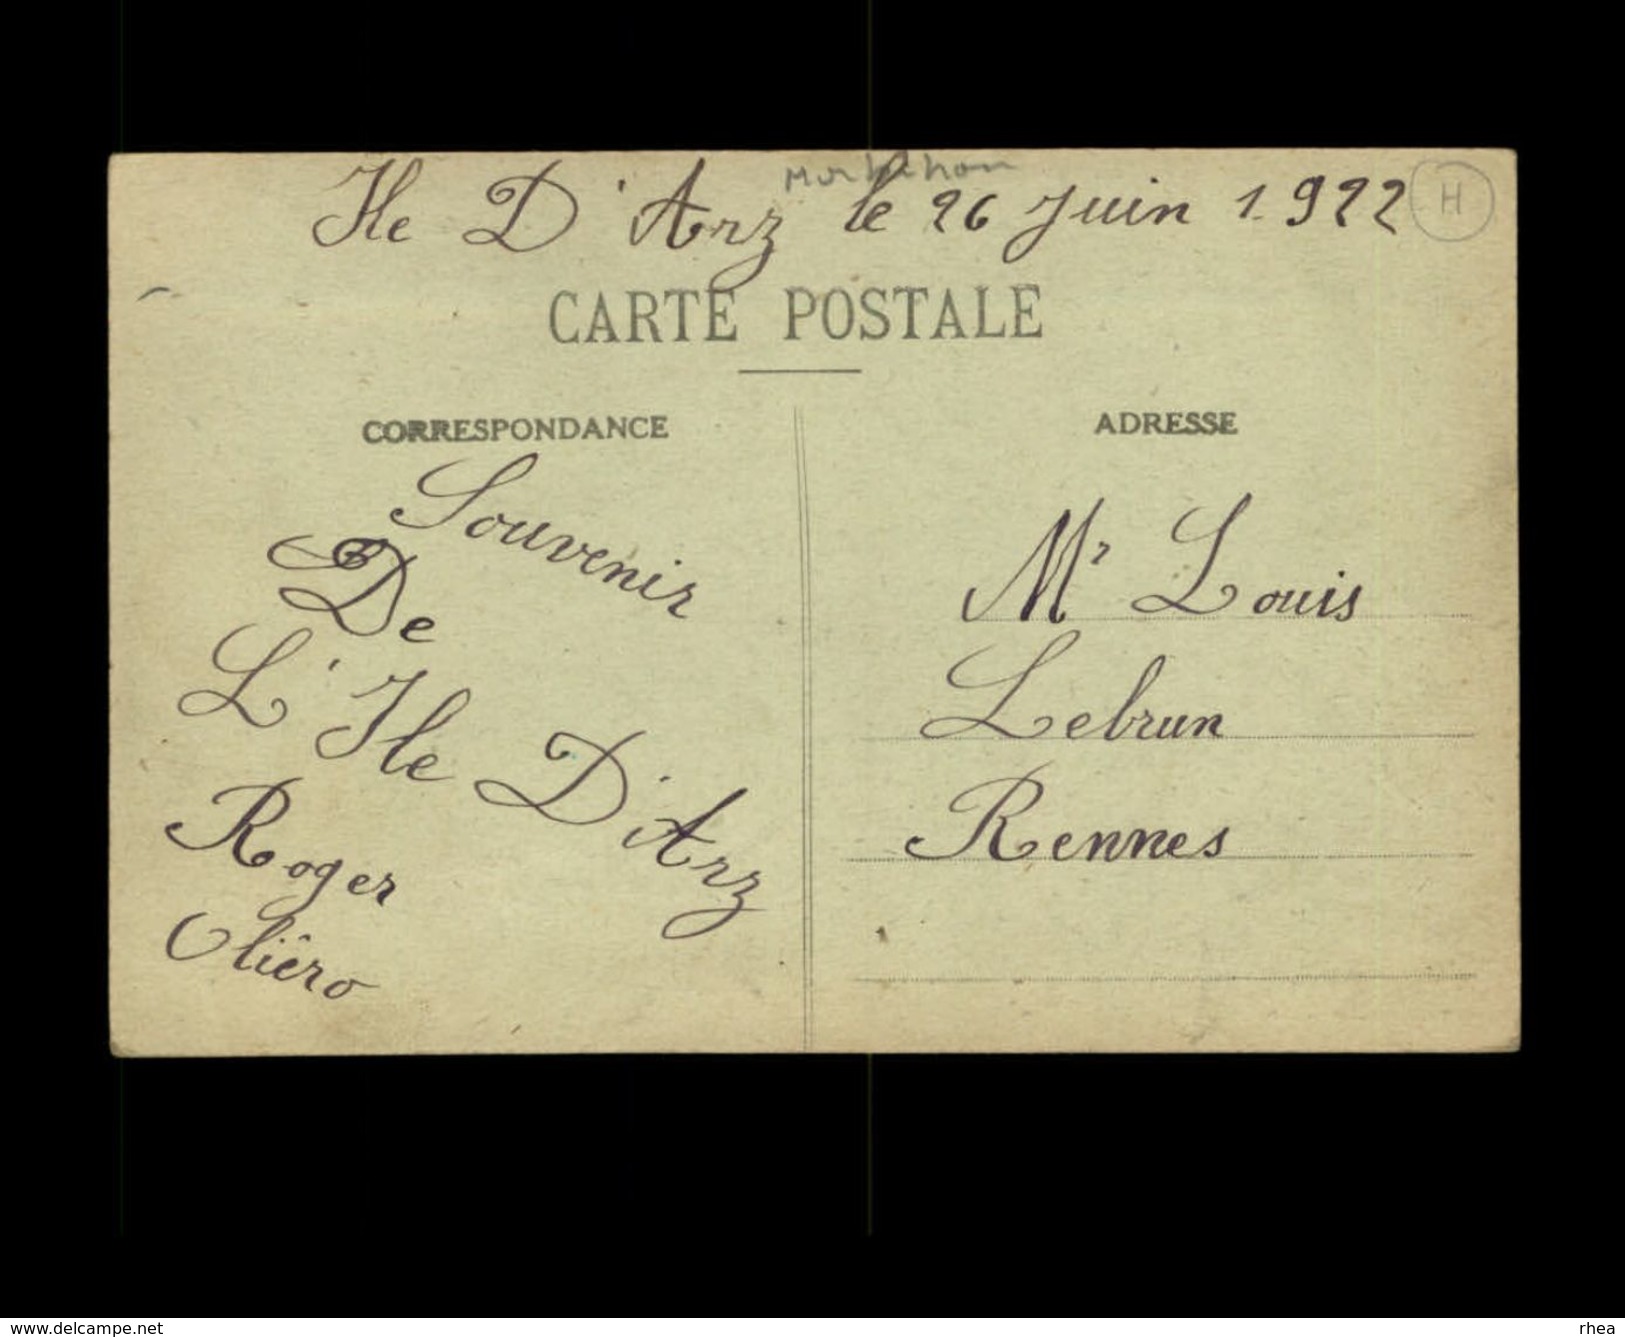 Morbihan
Ile D'Arz le 26 Juin 1.922 H
CARTE POSTALE
CORRESPONDANCE
Souvenir
De
L'Ile D'Arz
Roger
Oliéro
ADRESSE
Mr Louis
Lebrun
Rennes
www.delcampe.net
rhea